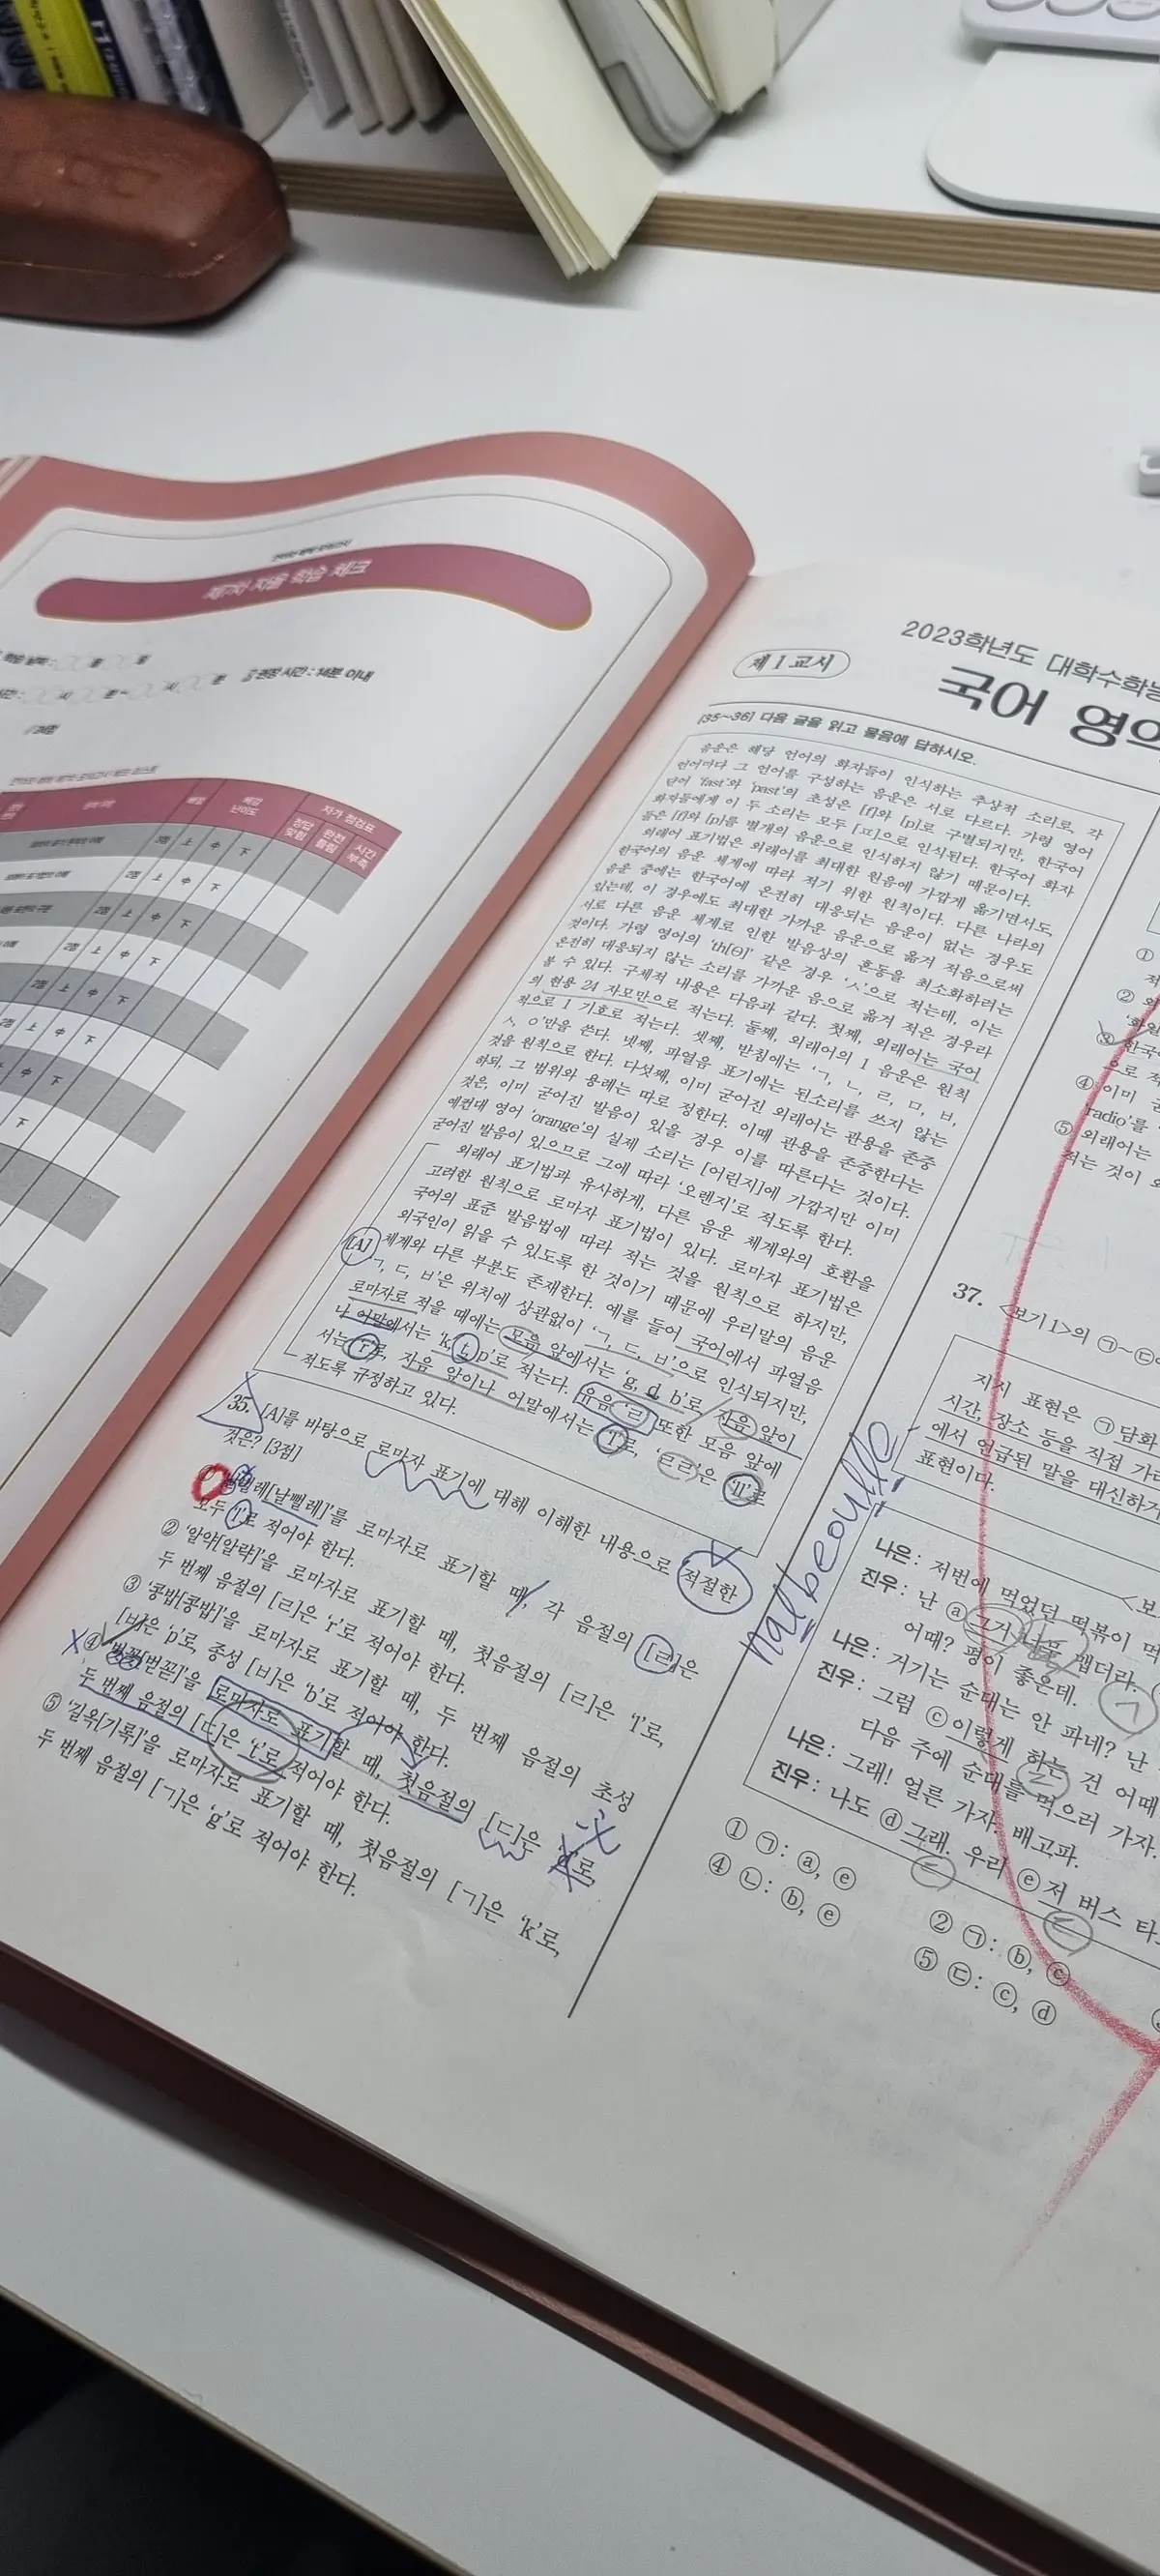 제7차 자율 학습 체크
권장 시간 : 14분 이내
자가 점검표
정답 맞힘
완전 틀림
시간 부족
2점 上 中 下
2점 上 中 下
2점 上 中 下
2023학년도 대학수학능
제 1 교시
국어 영역
[35~36] 다음 글을 읽고 물음에 답하시오.
음운은 해당 언어의 화자들이 인식하는 추상적 소리로, 각
언어마다 그 언어를 구성하는 음운은 서로 다르다. 가령 영어
단어 'fast'와 'past'의 초성은 [f]와 [p]로 구별되지만, 한국어
화자들에게 이 두 소리는 모두 [ㅍ]으로 인식된다. 한국어 화자
들은 [f]와 [p]를 별개의 음운으로 인식하지 않기 때문이다.
외래어 표기법은 외래어를 최대한 원음에 가깝게 옮기면서도,
한국어의 음운 체계에 따라 적기 위한 원칙이다. 다른 나라의
음운 중에는 한국어에 온전히 대응되는 음운이 없는 경우도
있는데, 이 경우에도 최대한 가까운 음운으로 옮겨 적음으로써
서로 다른 음운 체계로 인한 발음상의 혼동을 최소화하려는
것이다. 가령 영어의 'th[Θ]' 같은 경우 'ㅅ'으로 적는데, 이는
온전히 대응되지 않는 소리를 가까운 음으로 옮겨 적은 경우라
볼 수 있다. 구체적 내용은 다음과 같다. 첫째, 외래어는 국어
의 현용 24 자모만으로 적는다. 둘째, 외래어의 1 음운은 원칙
적으로 1 기호로 적는다. 셋째, 받침에는 'ㄱ, ㄴ, ㄹ, ㅁ, ㅂ,
ㅅ, ㅇ'만을 쓴다. 넷째, 파열음 표기에는 된소리를 쓰지 않는
것을 원칙으로 한다. 다섯째, 이미 굳어진 외래어는 관용을 존중
하되, 그 범위와 용례는 따로 정한다. 이때 관용을 존중한다는
것은, 이미 굳어진 발음이 있을 경우 이를 따른다는 것이다.
예컨대 영어 'orange'의 실제 소리는 [어린지]에 가깝지만 이미
굳어진 발음이 있으므로 그에 따라 '오렌지'로 적도록 한다.
외래어 표기법과 유사하게, 다른 음운 체계와의 호환을
고려한 원칙으로 로마자 표기법이 있다. 로마자 표기법은
국어의 표준 발음법에 따라 적는 것을 원칙으로 하지만,
외국인이 읽을 수 있도록 한 것이기 때문에 우리말의 음운
[A] 체계와 다른 부분도 존재한다. 예를 들어 국어에서 파열음
'ㄱ, ㄷ, ㅂ'은 위치에 상관없이 'ㄱ, ㄷ, ㅂ'으로 인식되지만,
로마자로 적을 때에는 모음 앞에서는 'g, d, b'로 자음 앞이
나 어말에서는 'k, t, p'로 적는다. 유음 'ㄹ' 또한 모음 앞에
서는 'r'로, 자음 앞이나 어말에서는 'l'로, 'ㄹㄹ'은 'll'로
적도록 규정하고 있다.
35. [A]를 바탕으로 로마자 표기에 대해 이해한 내용으로 적절한
것은? [3점]
① '날벌레[날뻘레]'를 로마자로 표기할 때, 각 음절의 [ㄹ]은
모두 'l'로 적어야 한다.
② '알약[알략]'을 로마자로 표기할 때, 첫음절의 [ㄹ]은 'l'로,
두 번째 음절의 [ㄹ]은 'r'로 적어야 한다.
③ '콩밥[콩밥]'을 로마자로 표기할 때, 두 번째 음절의 초성
[ㅂ]은 'p'로, 종성 [ㅂ]은 'b'로 적어야 한다.
④ '벋꼳[벋꼳]'을 로마자로 표기할 때, 첫음절의 [ㄷ]은 'd'로,
두 번째 음절의 [ㄷ]은 't'로 적어야 한다.
⑤ '길옥[기록]'을 로마자로 표기할 때, 첫음절의 [ㄱ]은 'k'로,
두 번째 음절의 [ㄱ]은 'g'로 적어야 한다.
nalbeolle
①
②
③ 한국
으로
④ 이미
'radio'를
⑤ 외래어는
적는 것이
37. <보기 1>의 ㉠~㉢
지시 표현은 ㉠담화
시간, 장소 등을 직접 가리
에서 언급된 말을 대신하거
표현이다.
<보
나은: 저번에 먹었던 떡볶이
진우: 난 ⓐ거기 너무 맵더라.
어때? 평이 좋은데.
나은: 거기는 순대는 안 파네? 난
진우: 그럼 ⓒ이렇게 하는 건 어때
다음 주에 순대를 먹으러 가자.
나은: 그래! 얼른 가자. 배고파.
진우: 나도 ⓓ그래. 우리 ⓔ저 버스 타
① ㉠: ⓐ, ⓔ
② ㉠: ⓑ, ⓒ
④ ㉡: ⓑ, ⓔ
⑤ ㉢: ⓒ, ⓓ